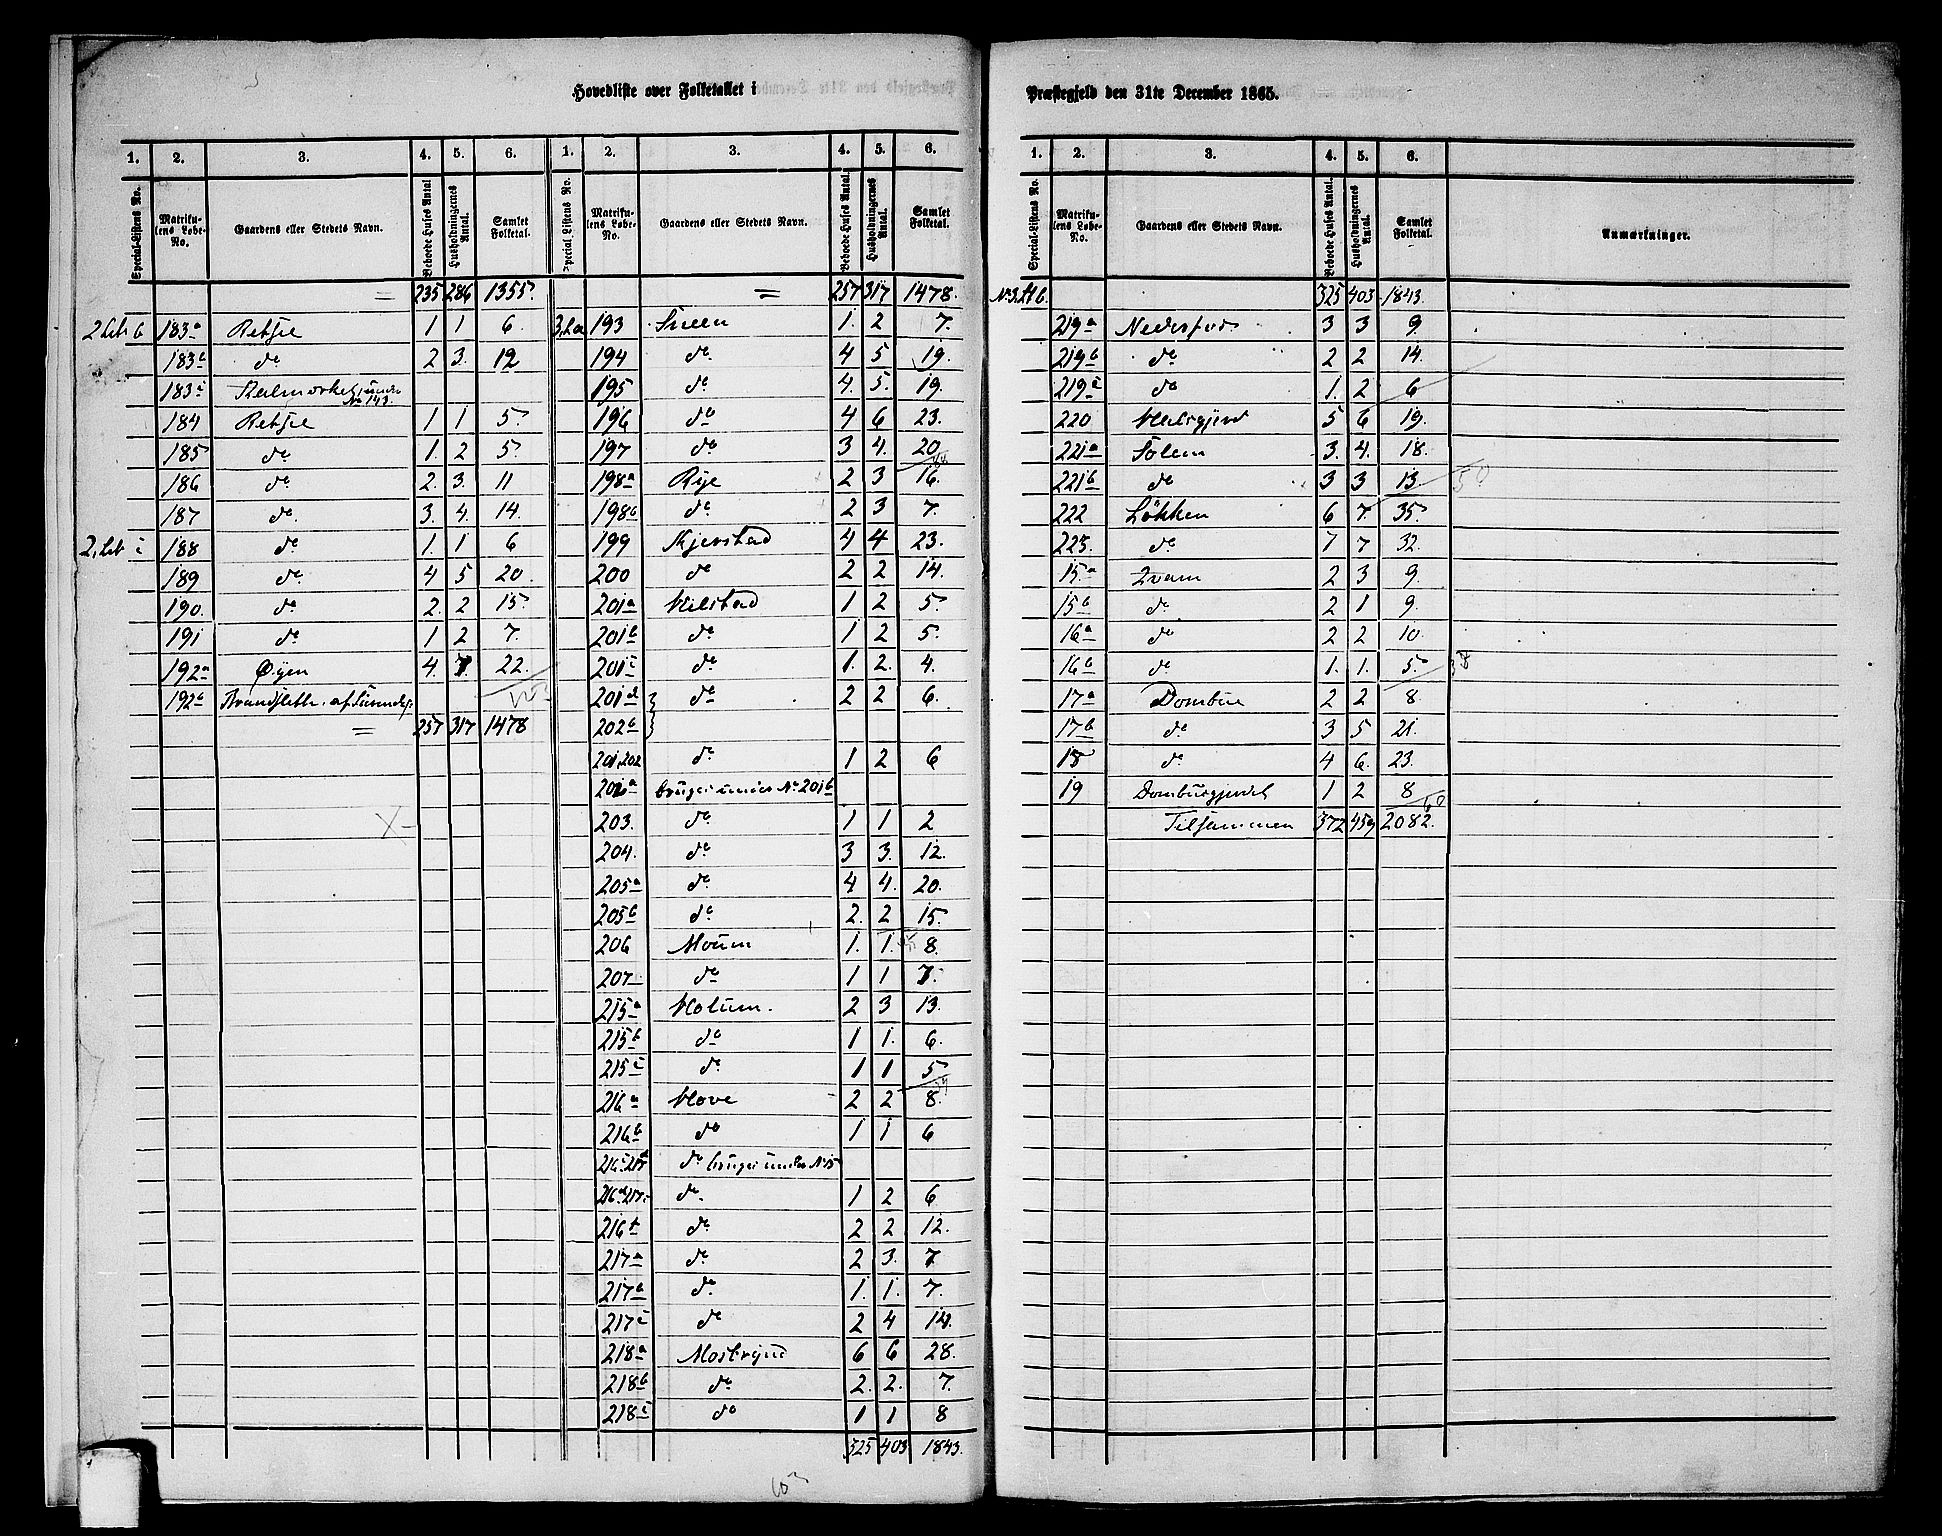 Hovedliste over Folketallet i
1. 2. 3. 4. 5. 6. 1. 2. 3. 4. 5. 6.
Special-Listens No. Matrikulens Løbe-No. Gaardens eller Stedets Navn. Beboede Huses Antal Husholdningernes Antal. Samlet Folketal. Special-Listens No. Matrikulens Løbe-No. Gaardens eller Stedets Navn. Beboede Huses Antal. Husholdningernes Antal. Samlet Folketal.
= 235 286 1355.
2 Litr b 183a 1 1 6.
183b do 2 3. 12
183c under No 143.
184 1 1 5
185 do 1. 2 5
186 do 2. 3. 11
187 do. 3. 4. 14.
2. Litr c 188 do 1. 1 6
189 do 4 5 20.
190. do 2. 2 15.
191 do 1 2 7.
192a Øyen 4. 7. 22.
192b
= 257 317 1478
X
= 257 317 1478.
3.L.a 193 Sneen 1. 2 7.
194 do 4 5 19.
195 do 4. 5. 19.
196 do 4 6 23.
197 do 3 4. 20
198a Rye 2 3 16.
198b do 2 3 7.
199 Kjerstad 4 4 23.
200 do 2 2 14.
201a Hilstad 1 2 5
201b do 1 2 5.
201c do 1. 2. 4.
201d do 2 2 6.
202b
201.202 do 1 2 6
202a bruges under No 201b
203. do 1 1 2
204. do 3 3. 12.
205a do 4 4. 20.
205b do 2. 2 15.
206 Moum 1. 1. 8.
207 do 1 1 7.
215a Holum. 2 3 13.
215b do 1 1. 6.
215c do 1 1 5
216a Hove 2 2 8.
216b do 1 1 6
do bruges under No 15
do. 1 2 6
216f do 2 2 12.
217a do. 2 3. 7
217b do. 1. 1. 7.
217c do 2 4 14.
218a 6 6 28.
218b do 2. 2. 7.
218c do 1 1 8
325 403 1843.
103
Præstegjeld den 31te December 1865.
1. 2. 3. 4. 5. 6.
Special-Listens No. Matrikulens Løbe-No. Gaardens eller Stedets Navn. Beboede Huses Antal. Husholdningernes Antal. Samlet Folketal. Anmærkninger.
No 3. Lit b. 325 403 1843.
219a 3 3 9.
219b do 2 2 14.
219c do 1. 2 6
220 5 6 19.
221a Solem 3. 4. 18.
221b do 3 3 13. 50
222 Løkken 6 7. 35.
223. do 7 7 32.
15a Kvam 2 3 9.
15b do 2 1 9.
16a do 2 2 10.
16b do 1. 1. 5 38
17a Dombu 2 2 8
17b do 3 5 21.
18 do 4 6. 23.
19 Dombusgjerdet 1 2 8
60
Tilsammen 372 459 2082.